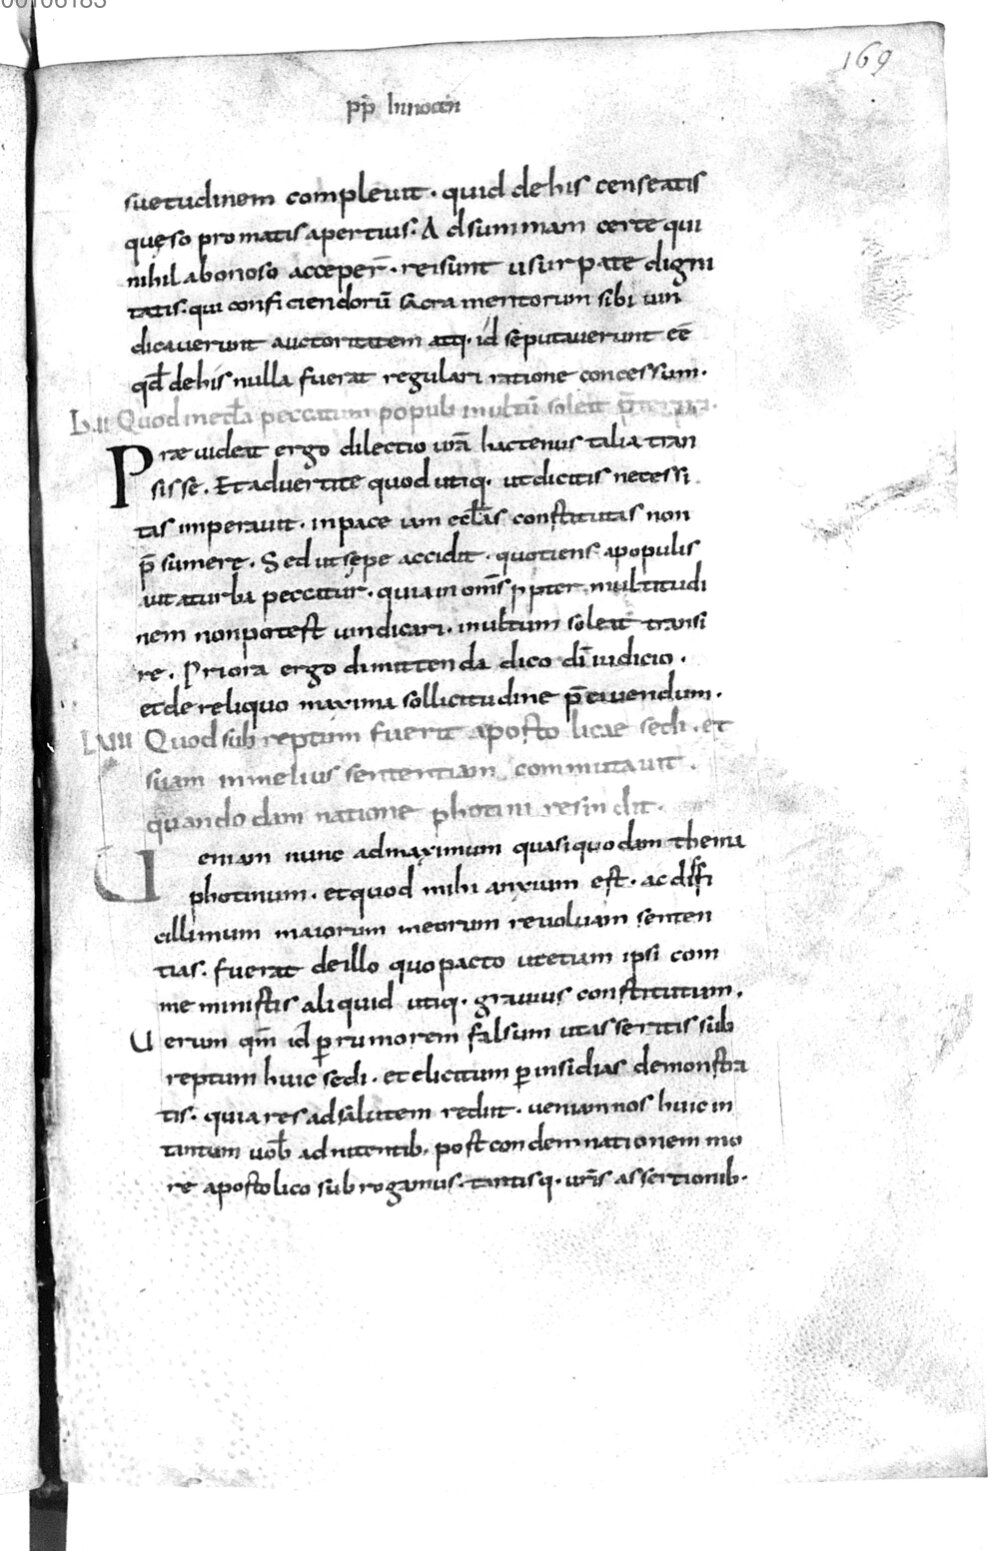 00106183
169
pp̄ Innocen
suetudinem compleuit · quid de his censeatis
quęso promatis apertius · Ad summam certe qui
nihil a bono so acceper̄ · rei sunt usurpate digni
tatis · qui conficiendorū sacramentorum sibi uin
dicauerunt auctoritatem atq · id se putauerunt eē
qđ de his nulla fuerat regulari ratione concessum ·
LVII Quod inectła peccatum populi inultū soleat
Prae uideat ergo dilectio urā hactenus talia tran
sisse · Et aduertite quod utiq · ut dicitis necessi
tas imperauit · in pace iam ecclas constitutas non
p̄sumere · Sed ut sępe accidit · quotiens a populis
aut a turba peccatur · quia in om̄s ppter multitudi
nem non potest uindicari · inultum soleat transi
re · Priora ergo dimittenda dico dī iudicio ·
et de reliquo maxima sollicitudine p̄cauendum ·
LVIII Quod subreptum fuerit apostolicae sedi · et
suam in melius sententiam commutauit ·
quando damnatione photini resindit ·
Ueniam nunc ad maximum quasi quodam thema
photinum · et quod mihi anxium est · ac diffi
cillimum maiorum meorum reuoluam senten
tias · fuerat de illo quo pacto utetum ipsi com
meministis aliquid utiq · grauius constitutum ·
Uerum qm̄ id p rumorem falsum ut asseritis sub
reptum huic sedi · et elicitum p insidias demonstra
tis · quia res ad salutem rediit · ueniam nos huic in
tantum uob adnitentib · post condemnationem mo
re apostolico subrogamus · tantisq · ur̄is assertionib ·